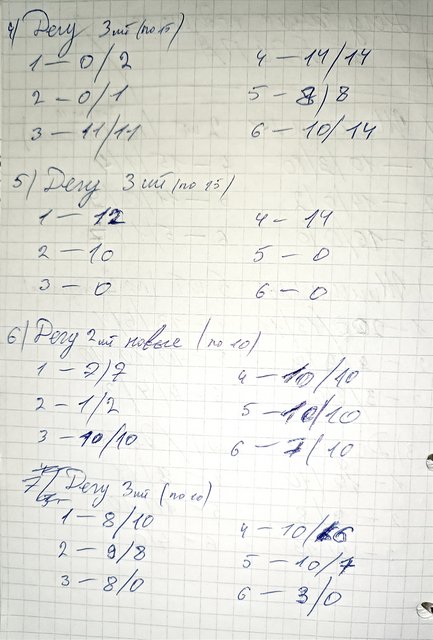 4) Дегу 3шт (по 15)
1 — 0/2 4 — 14/14
2 — 0/1 5 — 8/8
3 — 11/11 6 — 10/14
5) Дегу 3шт (по 15)
1 — 12 4 — 14
2 — 10 5 — 0
3 — 0 6 — 0
6) Дегу 2шт новые (по 10)
1 — 7/7 4 — 10/10
2 — 1/2 5 — 10/10
3 — 10/10 6 — 7/10
7) Дегу 3шт (по 10)
1 — 8/10 4 — 10/6
2 — 9/8 5 — 10/7
3 — 8/0 6 — 3/0